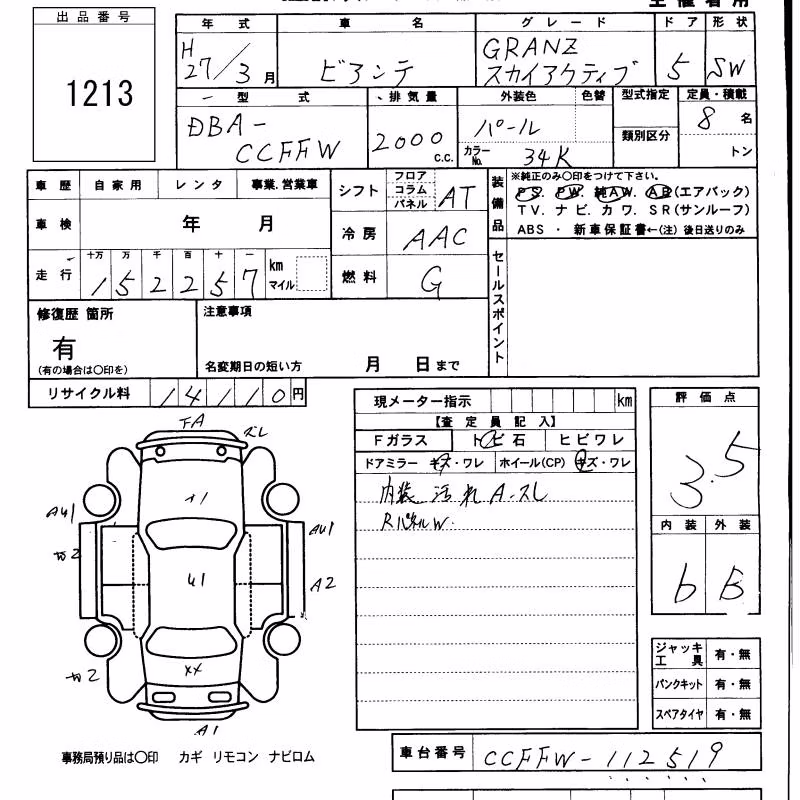 主催者用
出品番号
1213
年式 車名 グレード ドア 形状
H
27/3月 ビアンテ GRANZ
スカイアクティブ 5 SW
型式 排気量 外装色 色替 型式指定 定員・積載
DBA-
CCFFW 2000 c.c. パール 類別区分 8名
カラーNo. 34K トン
車歴 自家用 レンタ 事業.営業車
車検 年 月
走行 十万 万 千 百 十 一
152257 km
マイル
シフト フロア
コラム
パネル AT
冷房 AAC
燃料 G
装備品 ※純正のみ○印をつけて下さい。
PS. PW. 純AW. AB(エアバック)
TV. ナビ. カワ. SR(サンルーフ)
ABS ・ 新車保証書←(注) 後日送りのみ
セールスポイント
修復歴 箇所
有
(有の場合は○印を)
注意事項
名変期日の短い方 月 日まで
リサイクル料 14110円
現メーター指示 km
【査定員記入】
Fガラス トビ石 ヒビワレ
ドアミラー キズ・ワレ ホイール(CP) キズ・ワレ
内装 汚れ A.スレ
RパネルW.
評価点
3.5
内装 外装
b B
ジャッキ
工具 有・無
パンクキット 有・無
スペアタイヤ 有・無
A1
U1
XX
AU1
AU1
A2
A1
事務局預り品は○印 カギ リモコン ナビロム
車台番号 CCFFW-112519